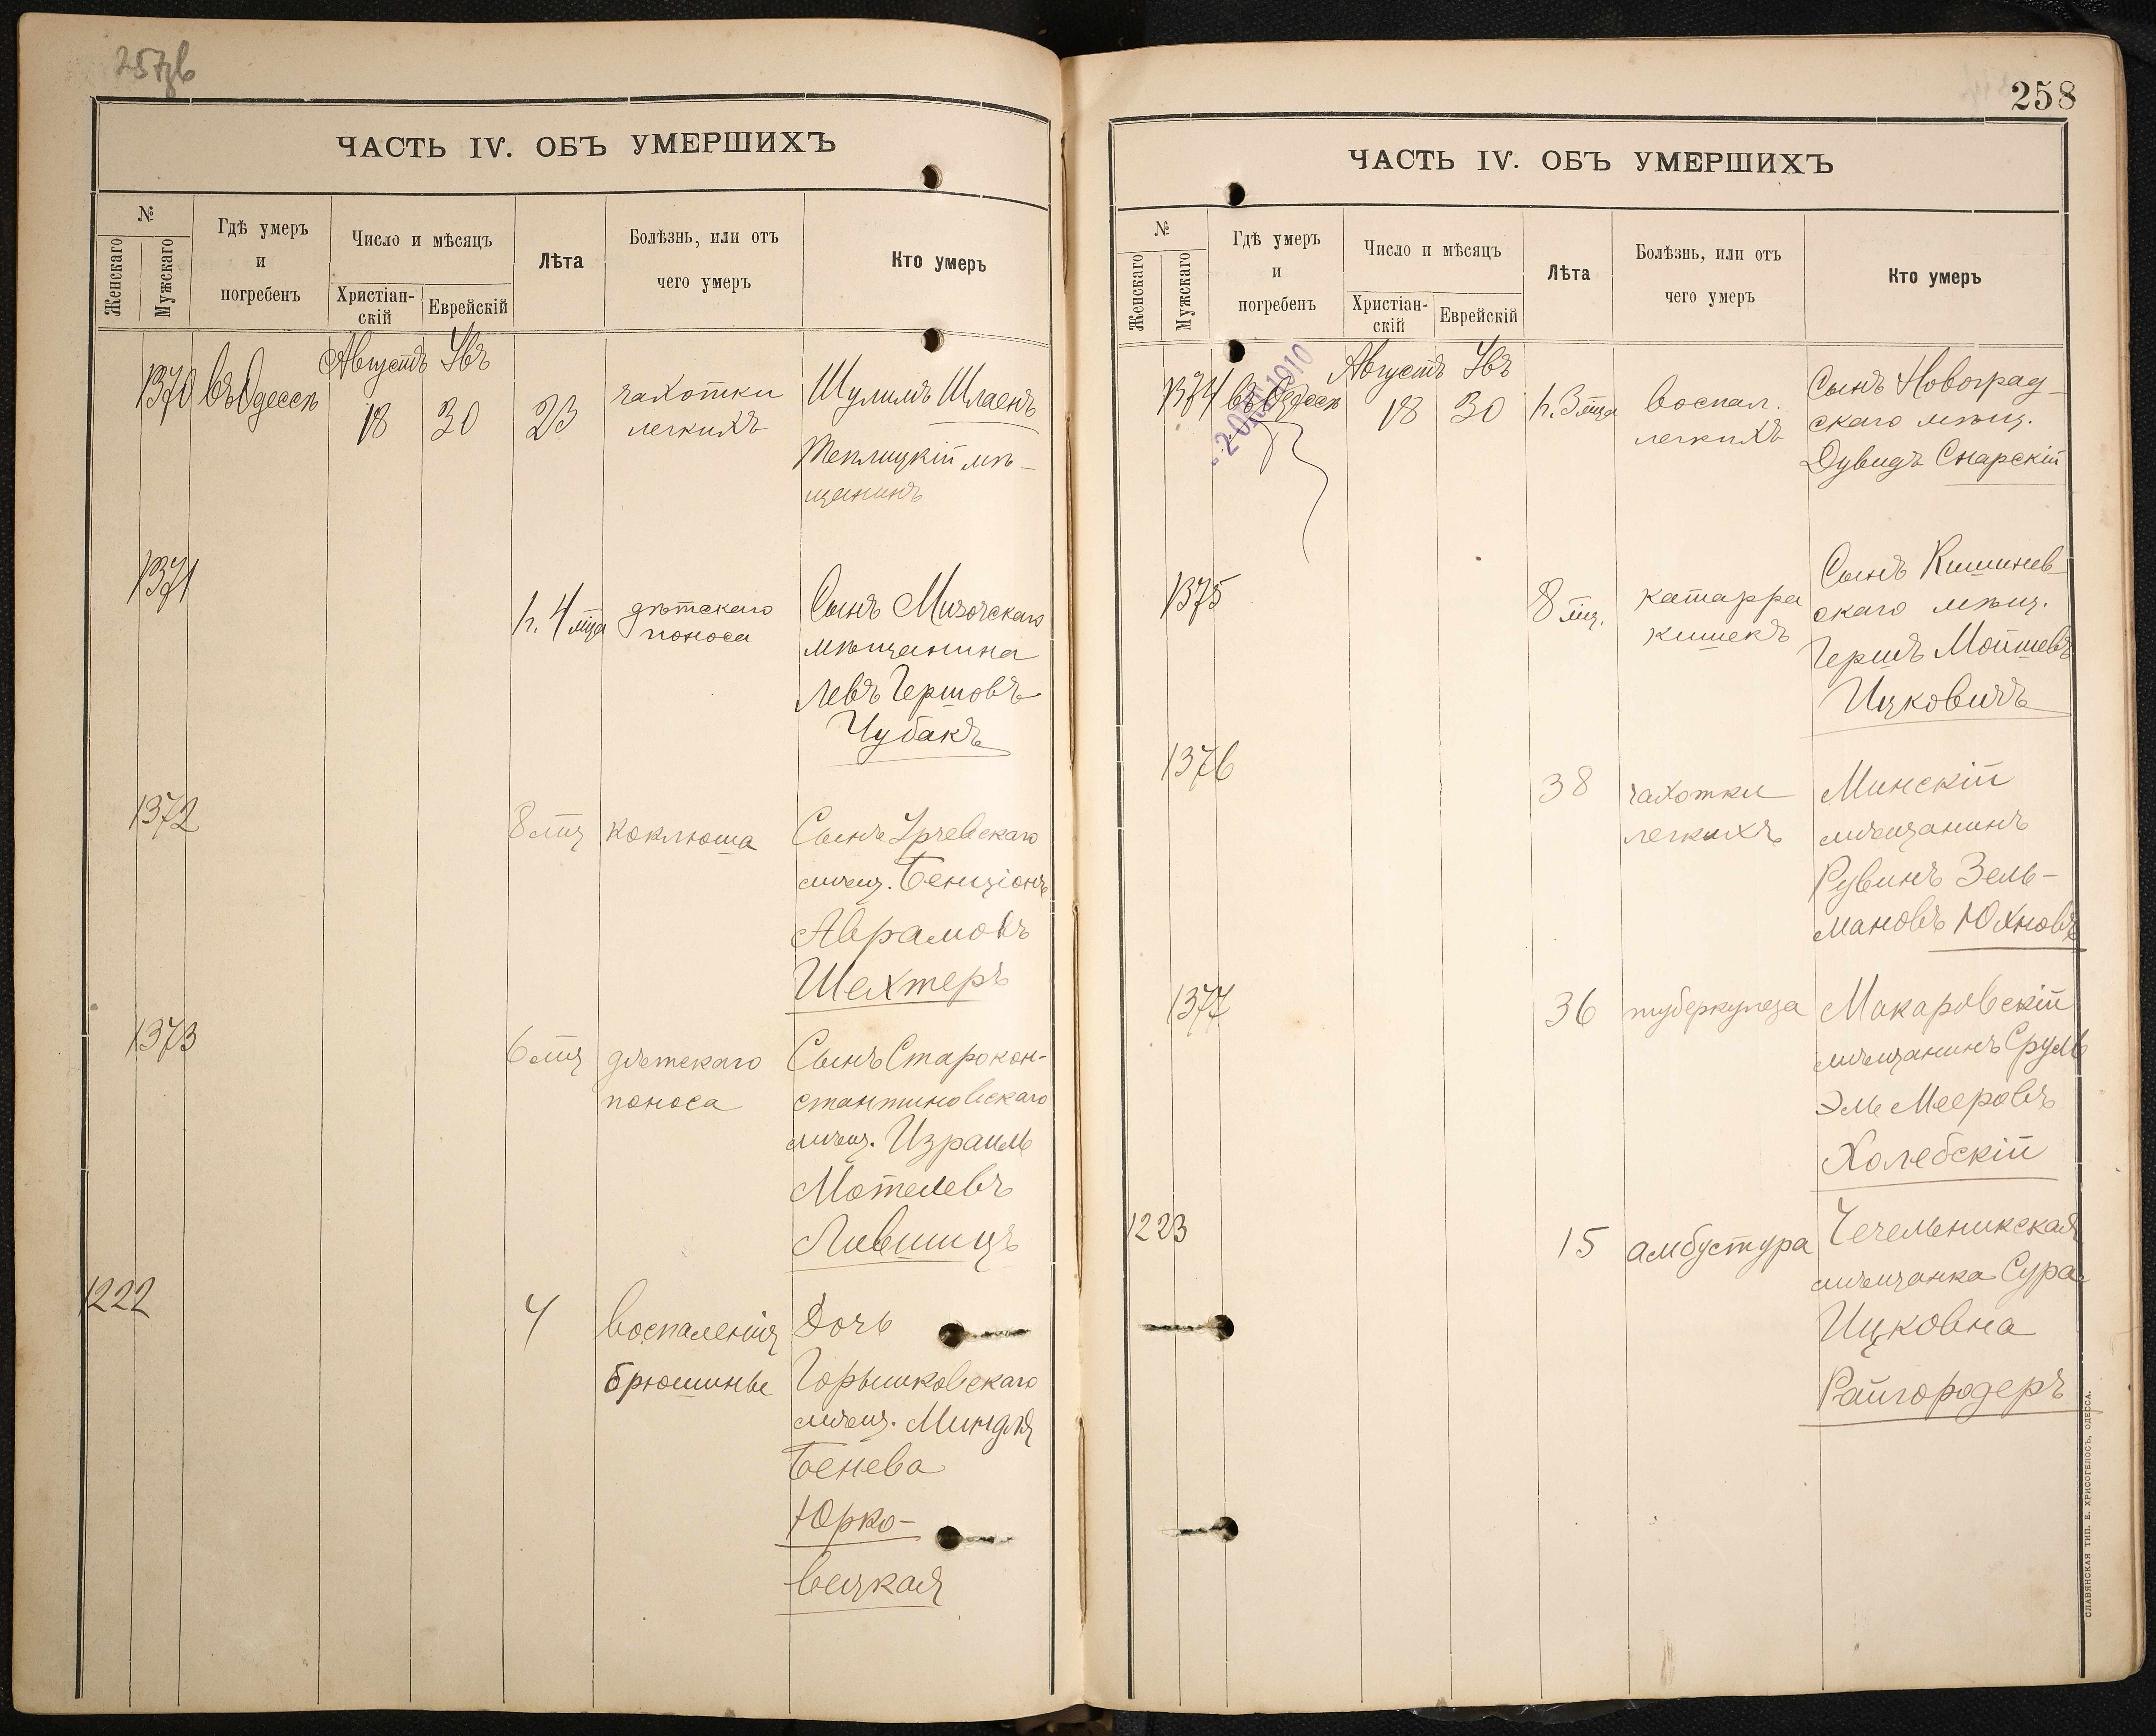 257об
ЧАСТЬ IV. ОБЪ УМЕРШИХЪ
№
Женскаго
Мужскаго
Гдѣ умеръ
и
погребенъ
Число и мѣсяцъ
Христіан-
скій
Еврейскій
Лѣта
Болѣзнь, или отъ
чего умеръ
Кто умеръ
Августъ Явъ
1370 въ Одессѣ 18 30 23
чахотки
легкихъ
Шулимъ Шлаенъ
Теплицкій мѣ-
щанинъ
1371
1. 4 мца
дѣтскаго
поноса
Сынъ Мизочскаго
мѣщанина
Левъ Гершовъ
Чубакъ
1372
8 мц
коклюша
Сынъ
мѣщ. Бенціонъ
Аврамовъ
Шехтеръ
1373
6 мц
дѣтскаго
поноса
Сынъ Старокон-
стантиновскаго
мѣщ. Израиль
Мотелевъ
Лившицъ
1222
4
воспаленія
брюшины
Дочь
Горышковскаго
мѣщ. Миндля
Бенева
Юрко-
вецкая
258
ЧАСТЬ IV. ОБЪ УМЕРШИХЪ
№
Женскаго
Мужскаго
Гдѣ умеръ
и
погребенъ
Число и мѣсяцъ
Христіан-
скій
Еврейскій
Лѣта
Болѣзнь, или отъ
чего умеръ
Кто умеръ
Августъ Явъ
1374 въ Одессѣ 18 30 1. 3 мца
1910
воспал.
легкихъ
Сынъ Новоград-
скаго мѣщ.
Дувидъ Снарскій
1375
8 мц.
катарра
кишекъ
Сынъ Кишинев-
скаго мѣщ.
Гершъ Мойшевъ
Ицковичъ
1376
38
чахотки
легкихъ
Минскій
мѣщанинъ
Рувинъ Зель-
мановъ Юхновъ
1377
36
туберкулеза
Макаровскій
мѣщанинъ Сруль
Эль Мееровъ
Холебскій
1223
15
амбустура
Чечельникская
мѣщанка Сура
Ицковна
Райгородеръ
СЛАВЯНСКАЯ ТИП. Е. ХРИСОГЕЛОСЪ, ОДЕССА.